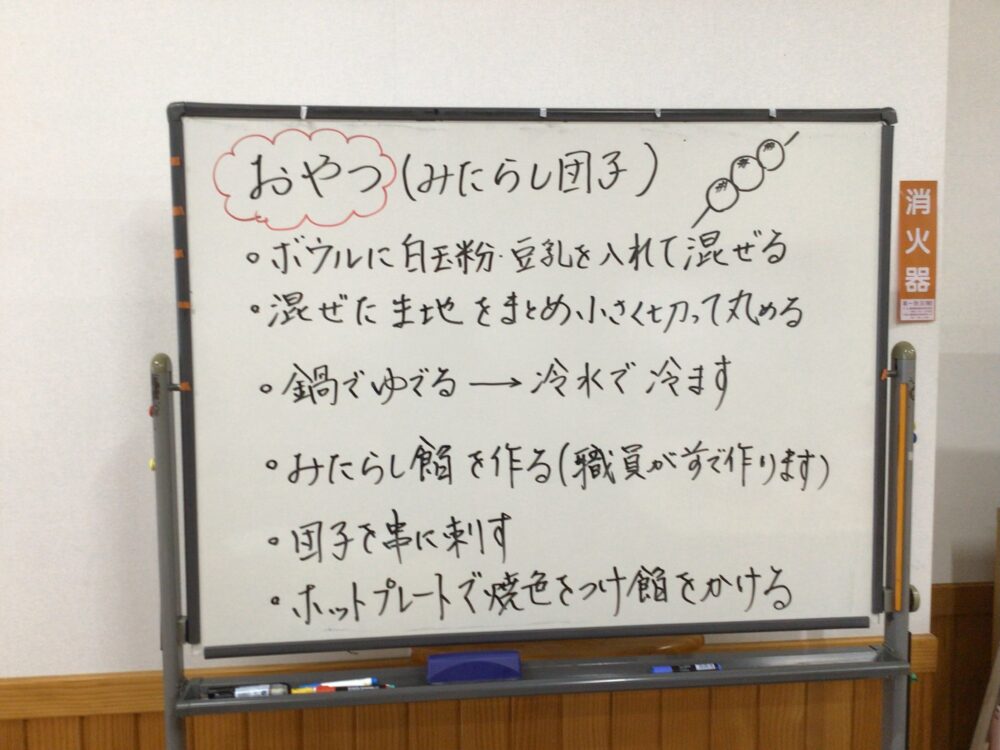 おやつ(みたらし団子)
・ボウルに白玉粉・豆乳を入れて混ぜる
・混ぜた生地をまとめ小さく切って丸める
・鍋でゆでる→冷水で冷ます
・みたらし餡を作る(職員が前で作ります)
・団子を串に刺す
・ホットプレートで焼色をつけ餡をかける
消火器